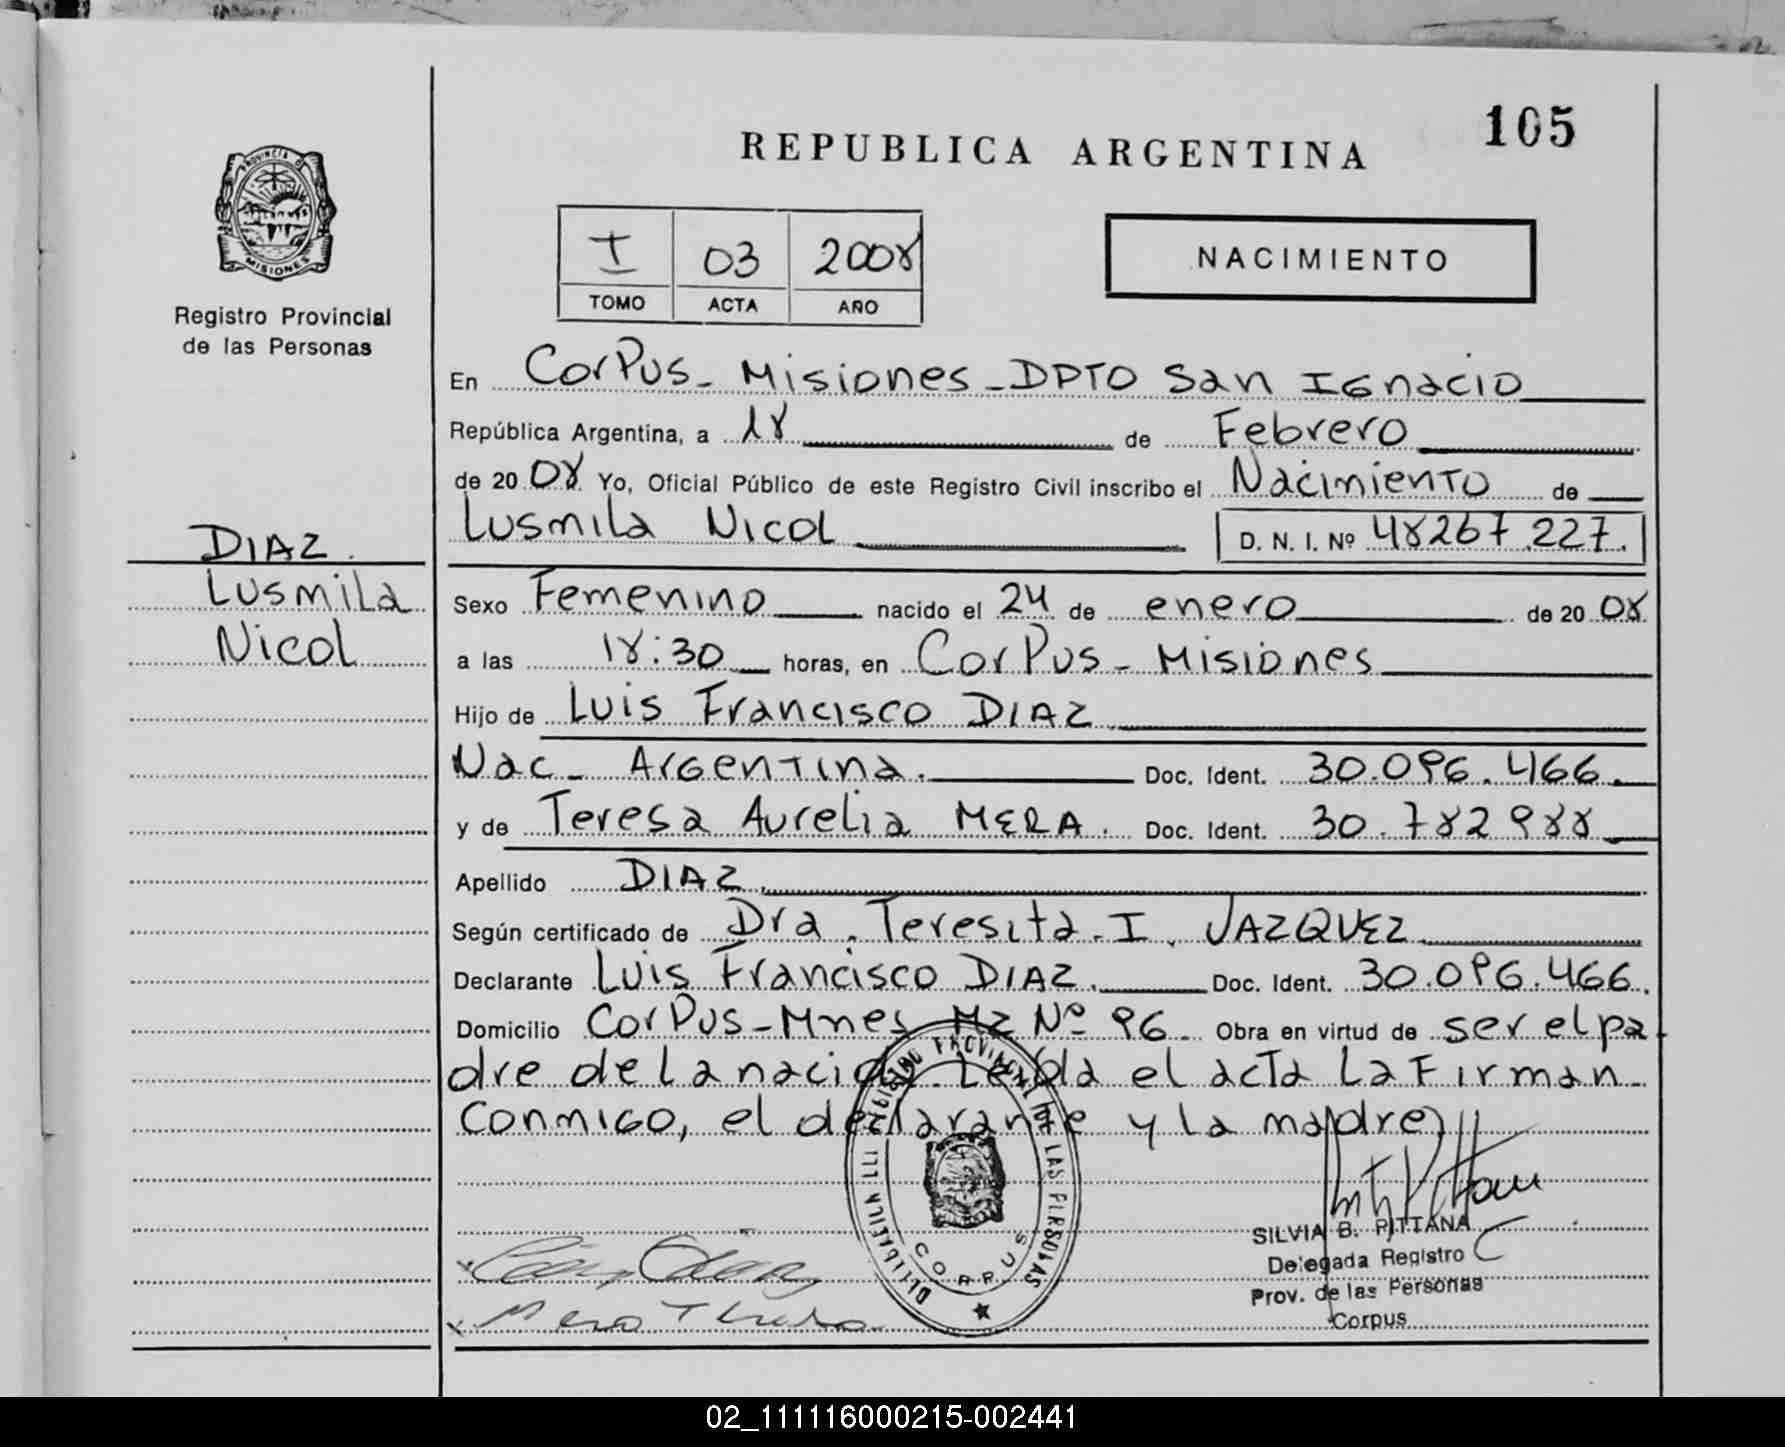 105
REPUBLICA ARGENTINA
PROVINCIA DE
MISIONES
Registro Provincial
de las Personas
I 03 2008
TOMO ACTA AÑO
NACIMIENTO
En Corpus - Misiones - DPTO San Ignacio
República Argentina, a 18 de Febrero
de 20 08 Yo, Oficial Público de este Registro Civil inscribo el Nacimiento de
Lusmila Nicol D. N. I. Nº 48267.227.
DIAZ.
Lusmila
Nicol
Sexo Femenino nacido el 24 de enero de 20 08
a las 18:30 horas, en Corpus - Misiones
Hijo de Luis Francisco DIAZ
Nac - Argentina. Doc. Ident. 30.096.466.
y de Teresa Aurelia MERA. Doc. Ident. 30.782988
Apellido DIAZ
Según certificado de Dra. Teresita. I. VAZQUEZ
Declarante Luis Francisco DIAZ. Doc. Ident. 30.096.466.
Domicilio Corpus - Mnes Mz Nº 96. Obra en virtud de ser el pa-
dre de la nacida. Leída el acta la firman
conmigo, el declarante y la madre
REGISTRO PROVINCIAL DE LAS PERSONAS
CORPUS
SILVIA B. PITTANA
Delegada Registro
Prov. de las Personas
Corpus
Mera
02_111116000215-002441